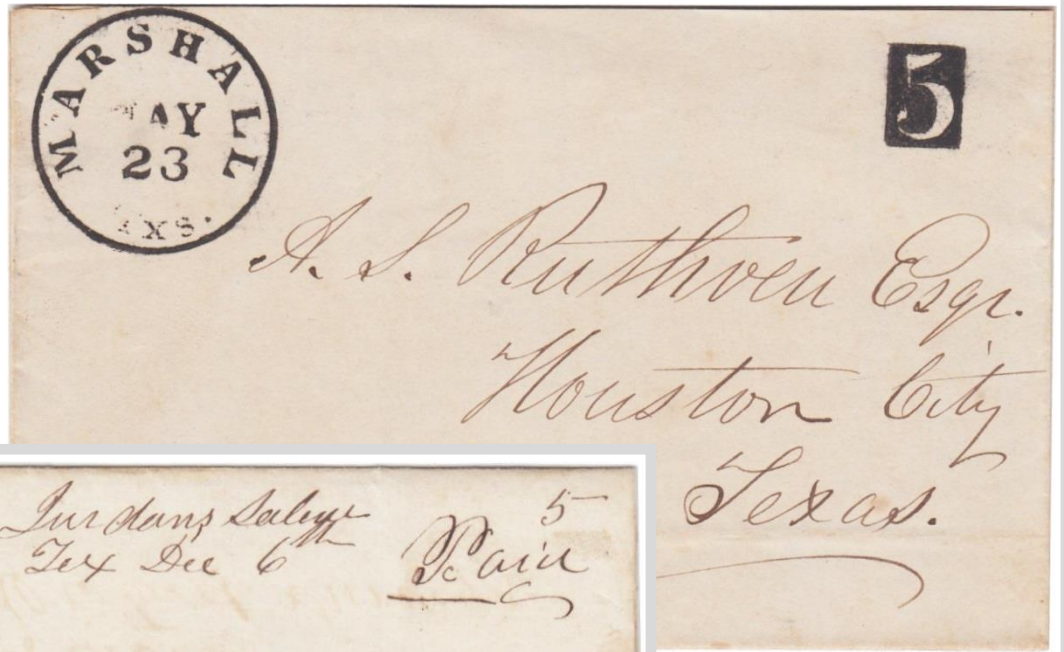 MARSHALL
MAY
23
TXS.
5
A. S. Ruthven Esqr.
Houston City
Texas.
Jurdans Saline
Tex Dec 6
5
Paid